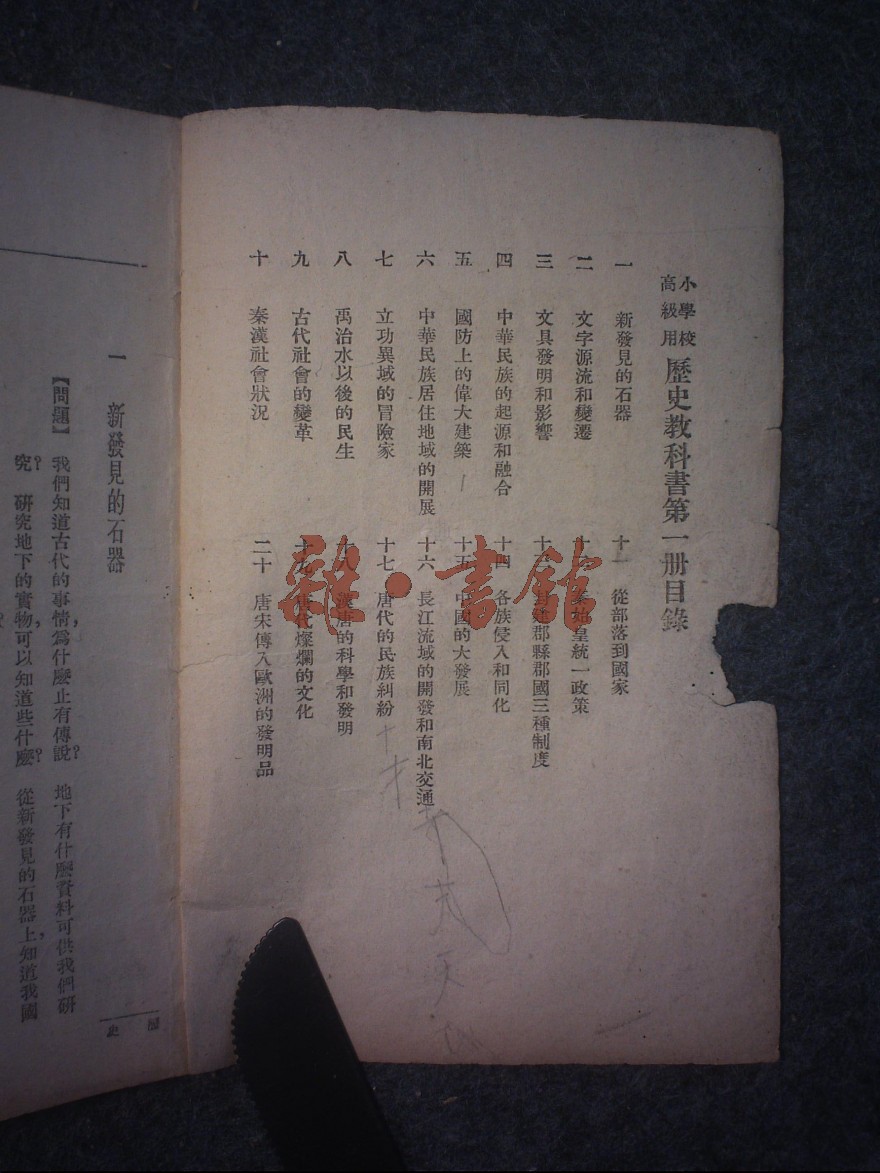 小學校高級用 歷史教科書第一册目錄
一 新發見的石器
二 文字源流和變遷
三 文具發明和影響
四 中華民族的起源和融合
五 國防上的偉大建築
六 中華民族居住地域的開展
七 立功異域的冒險家
八 禹治水以後的民生
九 古代社會的變革
十 秦漢社會狀況
十一 從部落到國家
十二 秦始皇統一政策
十三 封建郡縣郡國三種制度
十四 各族侵入和同化
十五 中國的大發展
十六 長江流域的開發和南北交通
十七 唐代的民族糾紛
十八 漢唐的科學和發明
十九 唐代燦爛的文化
二十 唐宋傳入歐洲的發明品
雜·書館
歷史
一 新發見的石器
【問題】 我們知道古代的事情,爲什麼止有傳說? 地下有什麼資料可供我們研
究? 研究地下的實物,可以知道些什麼? 從新發見的石器上,知道我國